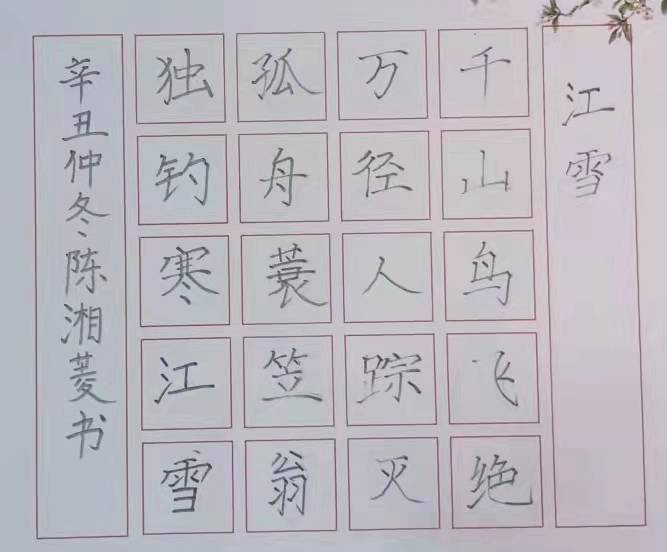 江雪
千山鸟飞绝
万径人踪灭
孤舟蓑笠翁
独钓寒江雪
辛丑仲冬陈湘菱书